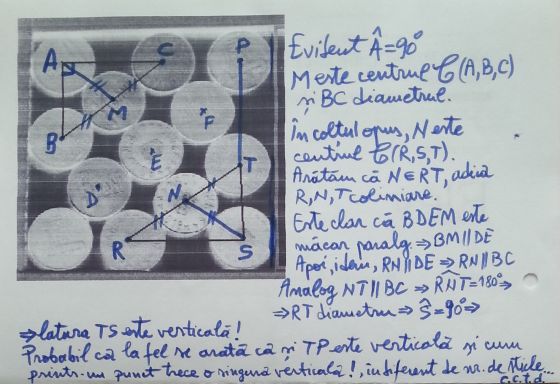 A
C
P
M
B
F
E
T
D
N
R
S
Evident Â=90°
M este centrul C(A,B,C)
și BC diametrul.
În colțul opus, N este
centrul C(R,S,T).
Arătăm că N∈RT, adică
R,N,T coliniare.
Este clar că BDEM este
măcar paralg. ⇒ BM∥DE
Apoi, idem, RN∥DE ⇒ RN∥BC
Analog NT∥BC ⇒ RNT=180° ⇒
⇒ RT diametru ⇒ Ŝ=90° ⇒
⇒ latura TS este verticală!
Probabil că la fel se arată că și TP este verticală și cum
printr-un punct trece o singură verticală!, indiferent de nr. de sticle...
c.c.t.d.